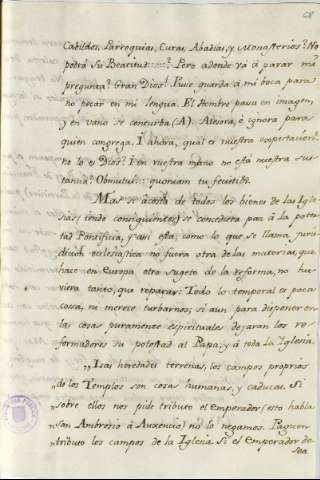 Cabildos, Parroquias, Curas, Abadias, y Monasterios? No
podrá Su Beatitud.....? Pero adonde vá á parar mi
pregunta? Gran Dios! Puse guarda á mi boca para
no pecar en mi lengua. El hombre pasa en imagen,
y en vano se conturba (A). Atesora, é ignora para
quien congrega. I ahora, qual es nuestra expectacion?
no lo es Dios? I en nuestra mano no està nuestra sus-
tancia? Obmutui... quoniam tu fecisti.
Mas si á costa de todos los bienes de las Igle-
sias se concediera paz á la potes-
tad Pontificia, y asi esta, como lo que se llama juris-
diccion eclesiastica no fuera otra de las materias, que
hace en Europa otro sugeto de la reforma, no hu-
viera tanto, que reparar: Todo lo temporal es poca
cosa, ni merece turbarnos; si aun para disponer en
las cosas puramente espirituales dejaran los re-
formadores su potestad al Papa, y á toda la Iglesia.
„ Las heredades terrenas, los campos proprios
„ de los Templos son cosas humanas, y caducas. Si
„ sobre ellos nos pide tributo el emperador (esto habla
„ San Ambrosio á Auxencio) no lo negamos. Paguen
„ tributo los campos de la Iglesia. Si el Emperador de-
sea